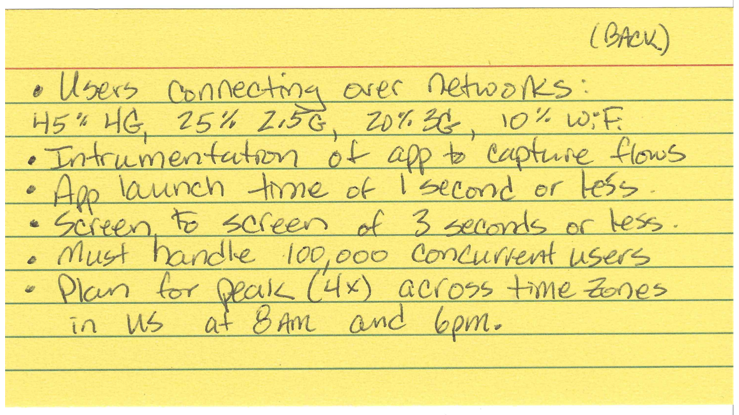 (BACK)
• Users connecting over networks:
45% 4G, 25% 2.5G, 20% 3G, 10% WiFi.
• Intrumentation of app to capture flows
• App launch time of 1 second or less.
• Screen to screen of 3 seconds or less.
• Must handle 100,000 concurrent users
• Plan for peak (4x) across time zones
in US at 8AM and 6pm.